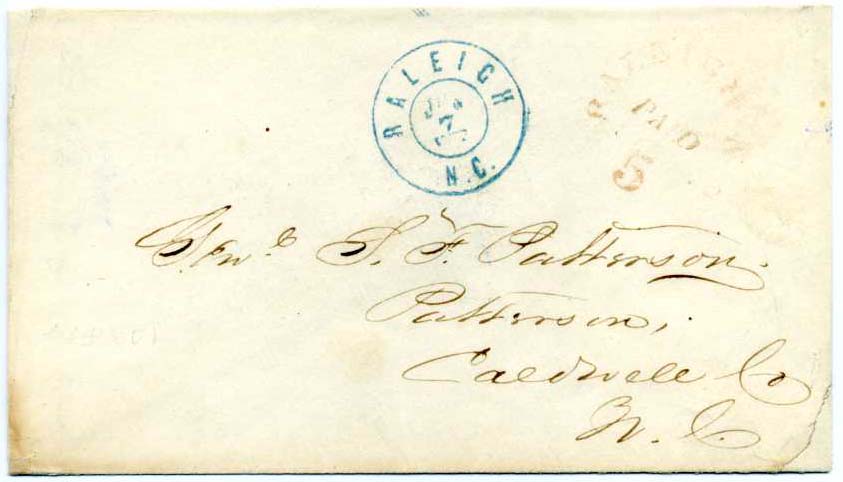 RALEIGH
7
N.C.
RALEIGH N
PAID
5
Genl. S. F. Patterson.
Patterson,
Caldwell Co
N. C.